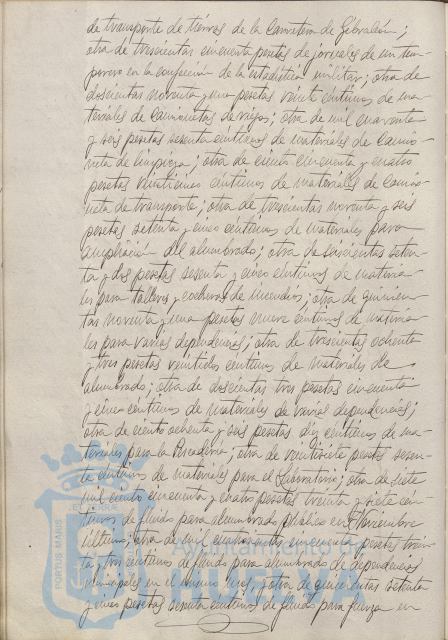 de transporte de tierras de la Carretera de Gibraleón;
otra de trescientas cincuenta pesetas de jornales de un tem-
porero en la confección de la estadística militar; otra de
doscientas noventa y una pesetas veinte céntimos de ma-
teriales de camionetas de riego; otra de mil cuarenta
y seis pesetas sesenta céntimos de materiales de camio-
neta de limpieza; otra de ciento cincuenta y cuatro
pesetas veinticinco céntimos de materiales de camio-
neta de transporte; otra de trescientas noventa y seis
pesetas setenta y cinco céntimos de materiales para
ampliación del alumbrado; otra de seiscientas seten-
ta y dos pesetas sesenta y cinco céntimos de materia-
les para talleres y cocheras de incendios; otra de quinien-
tas noventa y una pesetas nueve céntimos de materia-
les para varias dependencias; otra de trescientas ochenta
y tres pesetas veintidos céntimos de materiales de
alumbrado; otra de doscientas tres pesetas cincuenta
y cinco céntimos de materiales de varias dependencias;
otra de ciento ochenta y seis pesetas diez céntimos de ma-
teriales para la Pescadería; otra de veintisiete pesetas sesen-
ta céntimos de materiales para el Laboratorio; otra de siete
mil ciento cincuenta y cuatro pesetas treinta y siete cén-
timos de fluido para alumbrado público en Noviembre
último; otra de mil cincuenta pesetas trein-
ta y tres céntimos de fluido para alumbrado de dependencias
municipales en el mismo mes; otra de quinientas setenta
y cinco pesetas sesenta céntimos de fluido para fuerza en
PORTUS MARIS
Ayuntamiento de
HUELVA